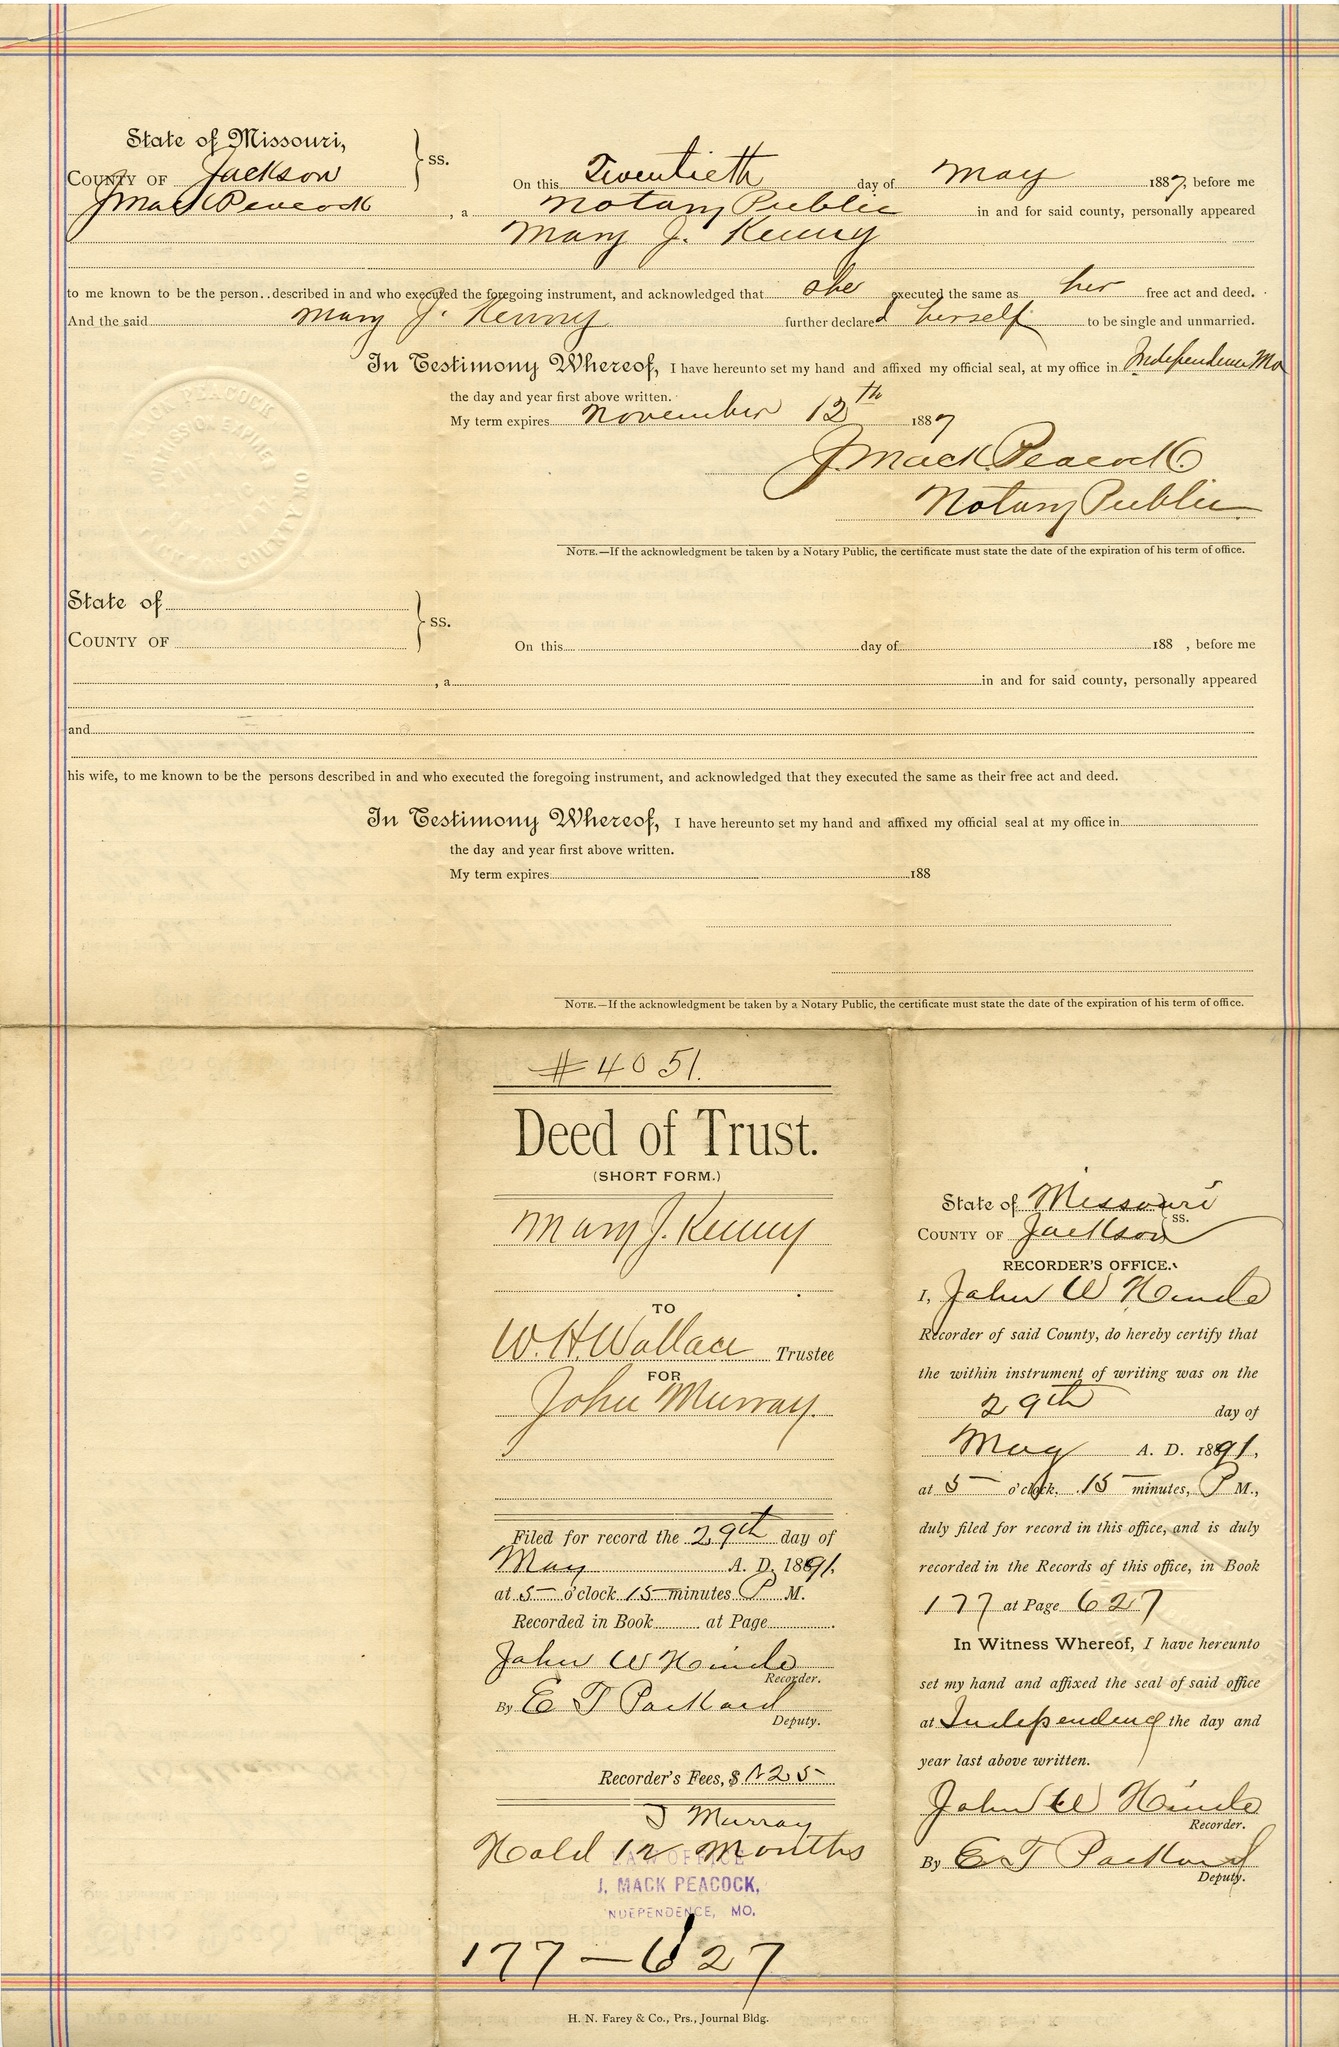 State of Missouri,
COUNTY OF Jackson } SS.
On this Twentieth day of May 1887, before me
J Mack Peacock, a Notary Public in and for said county, personally appeared
Mary J. Kenny
to me known to be the person..described in and who executed the foregoing instrument, and acknowledged that she executed the same as her free act and deed.
And the said Mary J. Kenny further declared herself to be single and unmarried.
In Testimony Whereof, I have hereunto set my hand and affixed my official seal, at my office in Independence Mo
the day and year first above written.
My term expires November 12th 1887
J. Mack Peacock
Notary Public
NOTE.—If the acknowledgment be taken by a Notary Public, the certificate must state the date of the expiration of his term of office.
State of
COUNTY OF } SS.
On this day of 188 , before me
, a in and for said county, personally appeared
and
his wife, to me known to be the persons described in and who executed the foregoing instrument, and acknowledged that they executed the same as their free act and deed.
In Testimony Whereof, I have hereunto set my hand and affixed my official seal at my office in
the day and year first above written.
My term expires 188
NOTE.—If the acknowledgment be taken by a Notary Public, the certificate must state the date of the expiration of his term of office.
#4051.
Deed of Trust.
(SHORT FORM.)
Mary J. Kenny
TO
W. H. Wallace Trustee
FOR
John Murray.
Filed for record the 29th day of
May A. D. 1891,
at 5 o'clock 15 minutes P M.
Recorded in Book at Page
John W Hinde
Recorder.
By E T Packard
Deputy.
Recorder's Fees, $ 1.25
J Murray
Hold 12 Months
LAW OFFICE
J. MACK PEACOCK,
INDEPENDENCE, MO.
177-627
State of Missouri
COUNTY OF Jackson } SS.
RECORDER'S OFFICE.
I, John W Hinde
Recorder of said County, do hereby certify that
the within instrument of writing was on the
29th day of
May A. D. 1891,
at 5 o'clock. 15 minutes, P M.,
duly filed for record in this office, and is duly
recorded in the Records of this office, in Book
177 at Page 627
In Witness Whereof, I have hereunto
set my hand and affixed the seal of said office
at Independence the day and
year last above written.
John W Hinde
Recorder.
By E T Packard
Deputy.
H. N. Farey & Co., Prs., Journal Bldg.